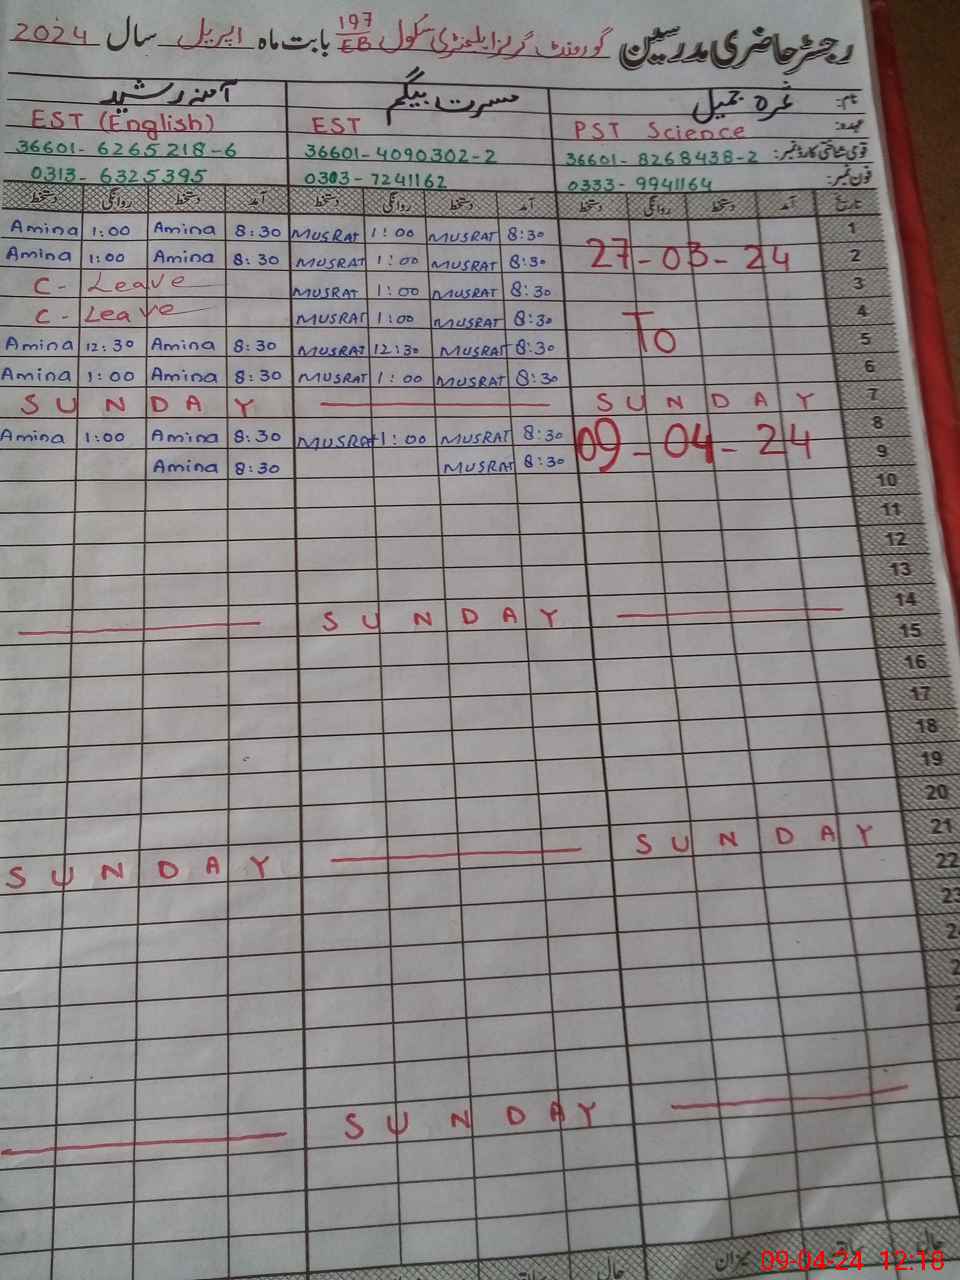 رجسٹر حاضری مدرسین گورنمنٹ گرلز ایلیمنٹری سکول 197/EB بابت ماہ اپریل سال 2024
نام: غرہ جمیل مسرت بیگم آمنہ رشید
عہدہ: PST Science EST EST (English)
قومی شناختی کارڈ نمبر: 36601-8268438-2 36601-4090302-2 36601-6265218-6
فون نمبر: 0333-9941164 0303-7241162 0313-6325395
تاریخ آمد دستخط روانگی دستخط آمد دستخط روانگی دستخط آمد دستخط روانگی دستخط
Amina 1:00 Amina 8:30 MUSRAT 1:00 MUSRAT 8:30 1
Amina 1:00 Amina 8:30 MUSRAT 1:00 MUSRAT 8:30 27-03-24 2
C- Leave MUSRAT 1:00 MUSRAT 8:30 3
C- Leave MUSRAT 1:00 MUSRAT 8:30 4
Amina 12:30 Amina 8:30 MUSRAT 12:30 MUSRAT 8:30 To 5
Amina 1:00 Amina 8:30 MUSRAT 1:00 MUSRAT 8:30 6
SUNDAY SUNDAY 7
Amina 1:00 Amina 8:30 MUSRAT 1:00 MUSRAT 8:30 09-04-24 8
Amina 8:30 MUSRAT 8:30 9
10
11
12
13
SUNDAY 14
15
16
17
18
19
20
SUNDAY SUNDAY 21
22
23
SUNDAY
میزان
09-04-24 12:18